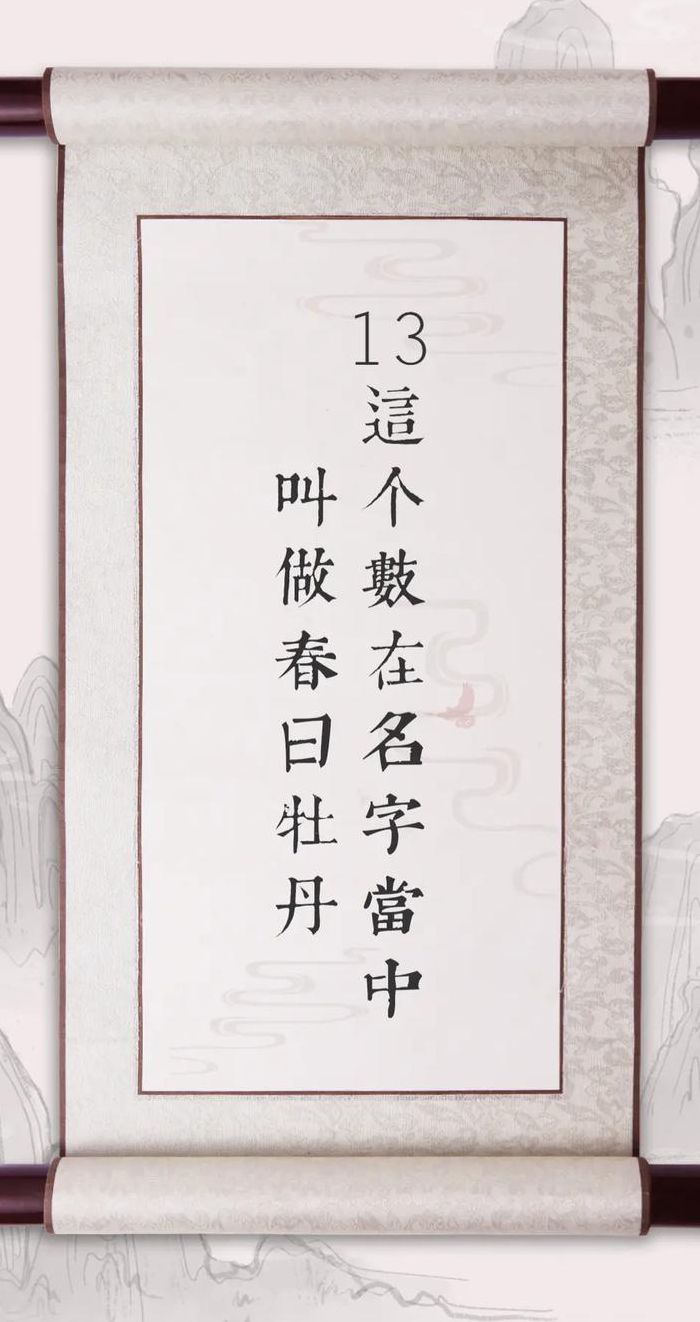 13這个數在名字當中
叫做春日牡丹